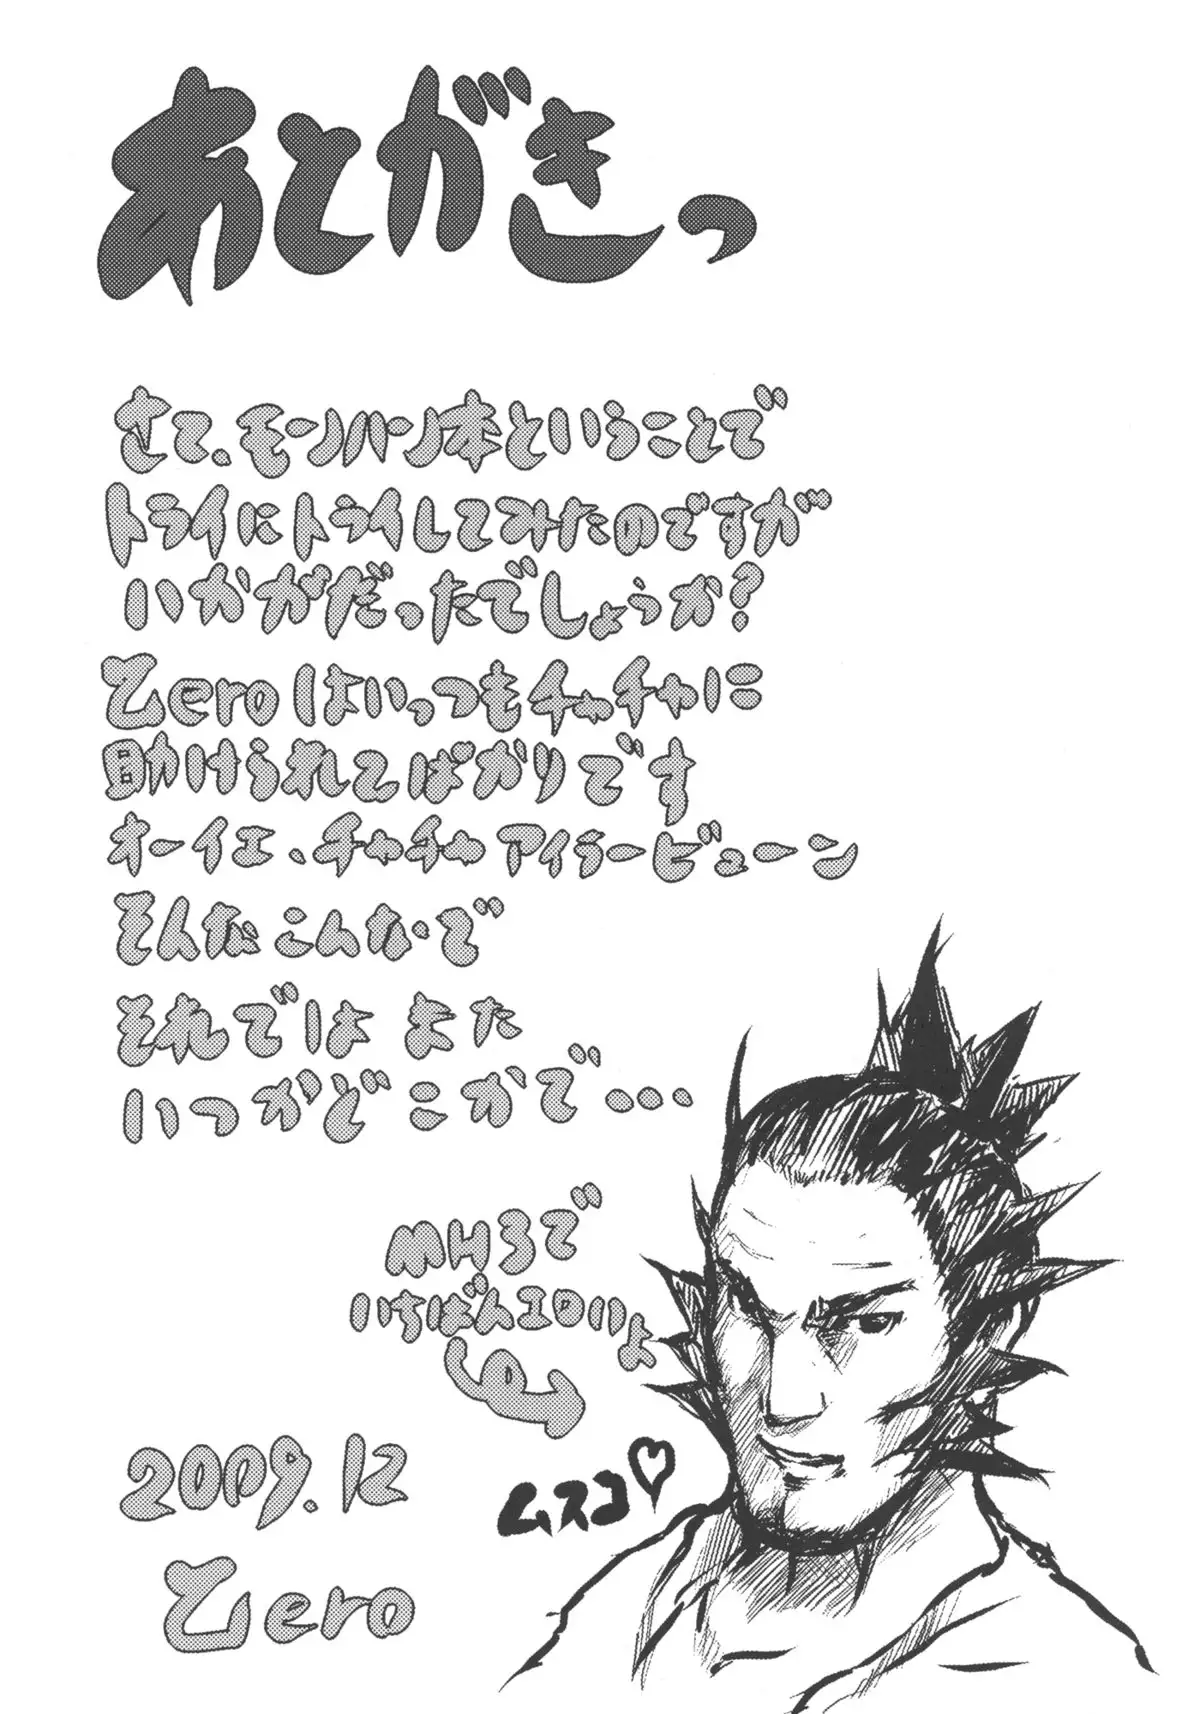 あとがきっ
さて、モンハン本ということで
トライにトライしてみたのですが
いかがだったでしょうか?
Zeroはいっつもチャチャに
助けられてばかりです
オーイエ、チャチャ アイラービューーン
そんな こんなで
それでは また
いつかどこかで・・・
MH3で
いちばんエロいよ
ムスコ♡
2009.12
Zero